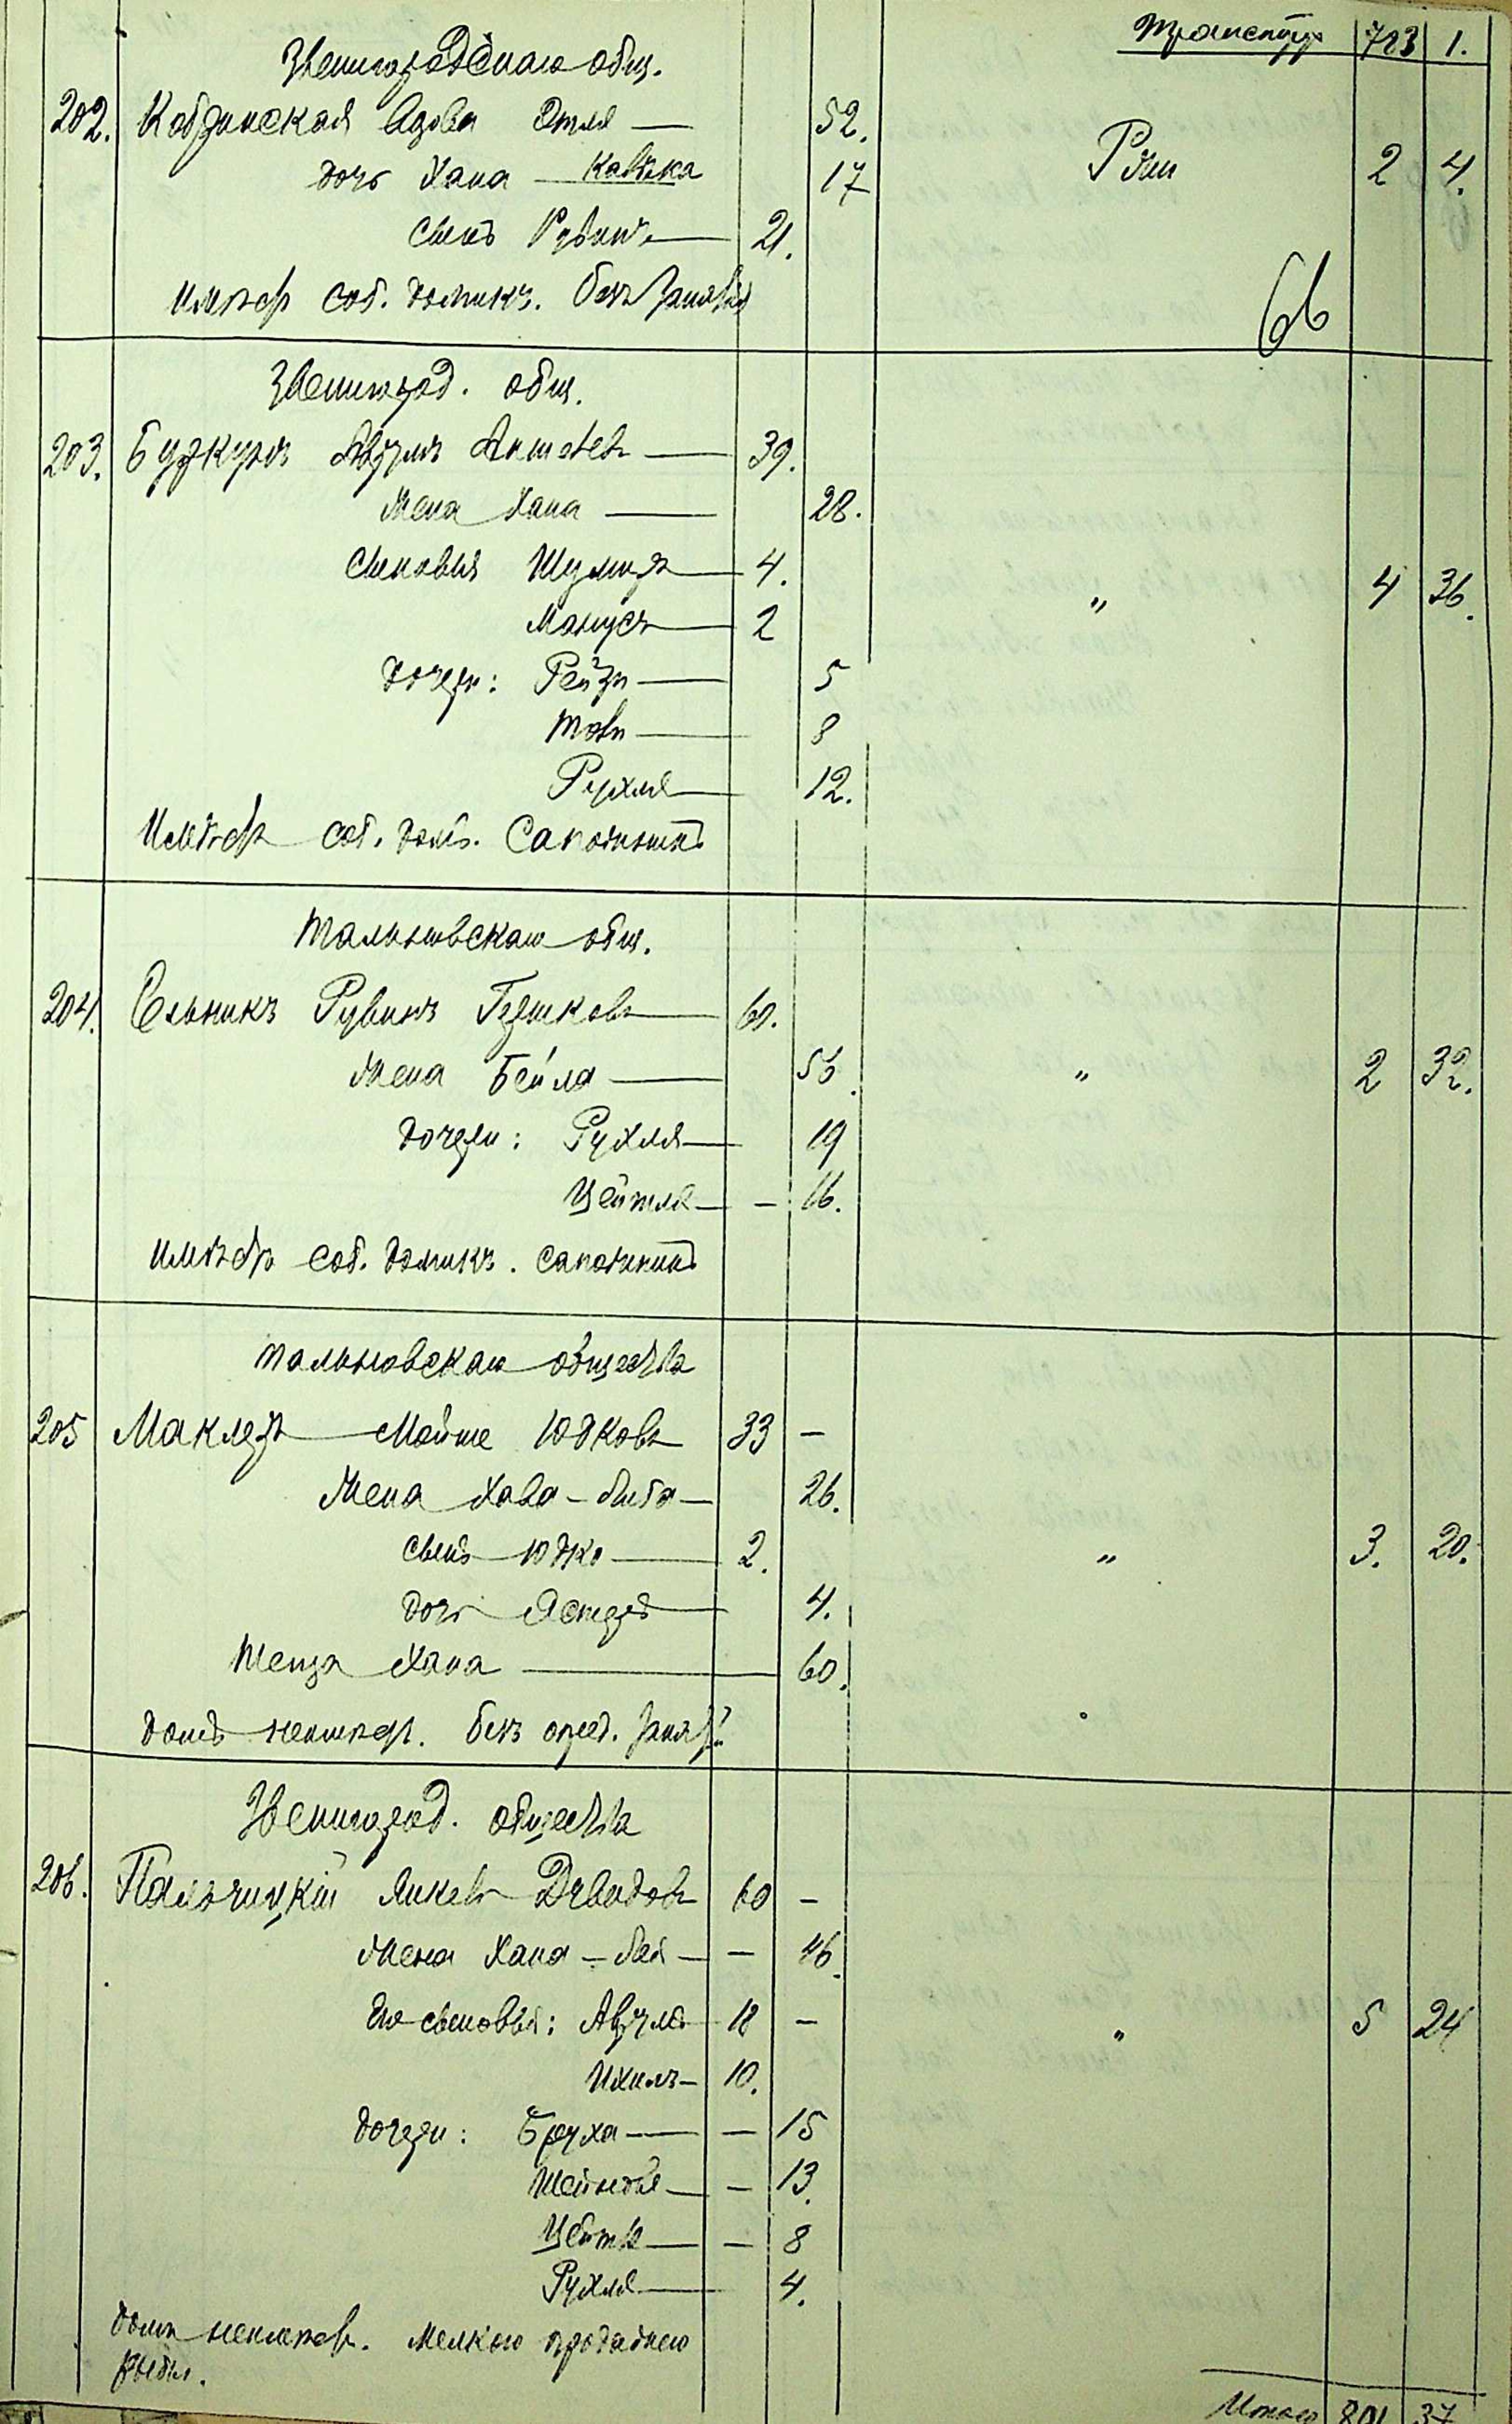 Транспорт 783 1.
Звенигородскаго общ.
202. Кобринская Вдова Этля — 52.
дочь Хана — Кавтка 17 Ржи 2 4.
сынъ Рувинъ — 21.
имѣетъ соб. домикъ. безъ занятій
66
Звенигород. общ.
203. Буркунъ Аврумъ Аншелевъ — 39.
Жена Хана — 28.
Сыновья Шулимъ — 4. " 4 36.
Манусъ — 2
дочери: Рейзя — 5
Товя — 8
Рухля — 12.
Имѣетъ соб. домъ. Сапожникъ
Тальновскаго общ.
204. Сльникъ Рувинъ Гершковъ — 60.
Жена Бейла — 56. " 2 32.
дочери: Рухля — 19
Цейтля — – 16.
имѣетъ соб. домикъ. сапожникъ
Тальновскаго общества
205 Маклеръ Мойше Юдковъ 33 –
Жена Хава – Либа – 26.
сынъ Юдко — 2. " 3. 20.
дочь Эстеръ — 4.
Теща Хана — 60.
домъ неимѣет. безъ опред. занят.
Звенигород. общества
206. Пальчицкій Янкель Дувидовъ 60 –
Жена Хана – Лея – – 46.
Его сыновья: Аврумъ 18 – " 5 24
Ихилъ – 10.
дочери: Бруха — – 15
Шейндля — – 13.
Цейтля — – 8
Рухля — 4.
домъ неимѣет. Мелкою продажею
рыбы.
Итого 801 37